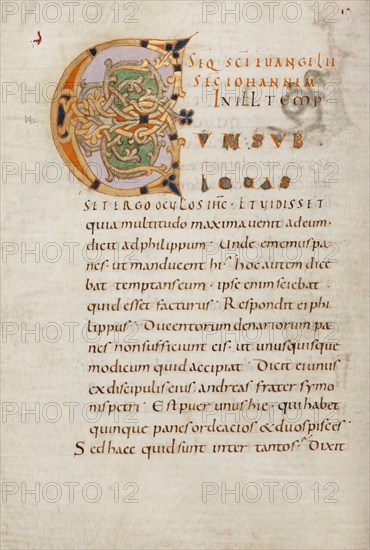 C
SEQ SCI EUANGELII
SEC IOHANNEM
IN ILL TEMP
UM SUB
SET ERGO OCULOS IHC · ET UIDISSET
quia multitudo maxima uenit ad eum ·
dicit ad philippum · Unde ememus pa
nes · ut manducent hi · hoc autem dice
bat temptans eum · ipse enim sciebat
quid esset facturus · Respondit ei phi
lippus · Ducentorum denariorum pa
nes non sufficiunt eis · ut unusquisque
modicum quid accipiat · Dicit ei unus
ex discipulis eius · andreas frater symo
nis petri · Est puer unus hic · qui habet
quinque panes ordeacios & duos pisces
Sed haec quid sunt inter tantos · Dixit
PHOTO 12